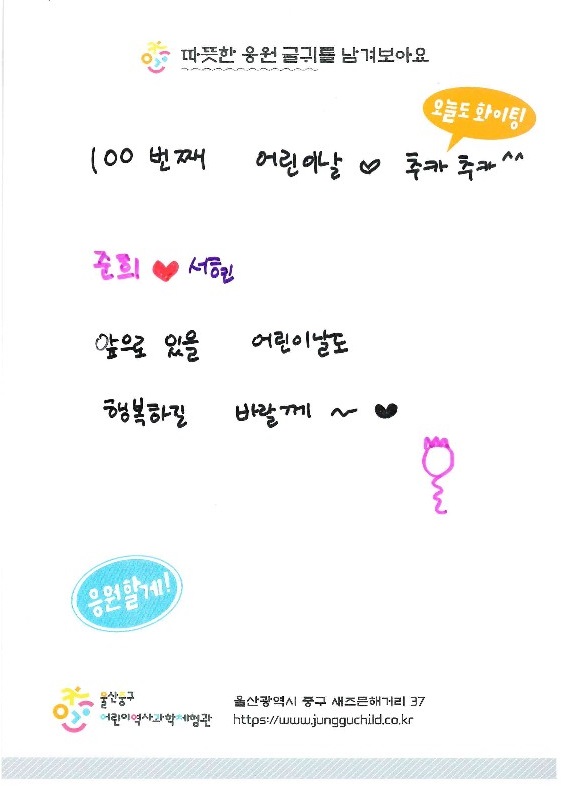 따뜻한 응원 글귀를 남겨보아요
오늘도 화이팅
100 번째 어린이날 ♡ 추카 추카 ^^
준희 ♥ 서현
앞으로 있을 어린이날도
행복하길 바랄께 ~ ♥
응원할게!
울산중구
어린이역사과학체험관
울산광역시 중구 새즈믄해거리 37
https://www.jungguchild.co.kr